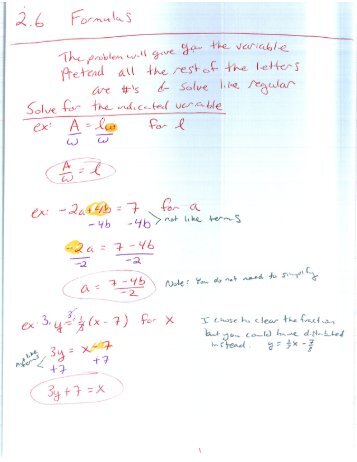 2.6 Formulas
The problem will give you the variable
Pretend all the rest of the letters
are #'s & solve like regular
Solve for the indicated variable
ex: A/ω = lω/ω for l
A/ω = l
ex: -2a+4b = 7 for a
-4b -4b > not like terms
-2a/-2 = 7-4b/-2
a = 7-4b/-2 Note: You do not need to simplify
ex: 3·y = 3·1/3 (x-7) for x
I chose to clear the fraction
but you could have distributed
instead. y = 1/3x - 7/3
not like terms 3y = x-7
+7 +7
3y+7 = x
1